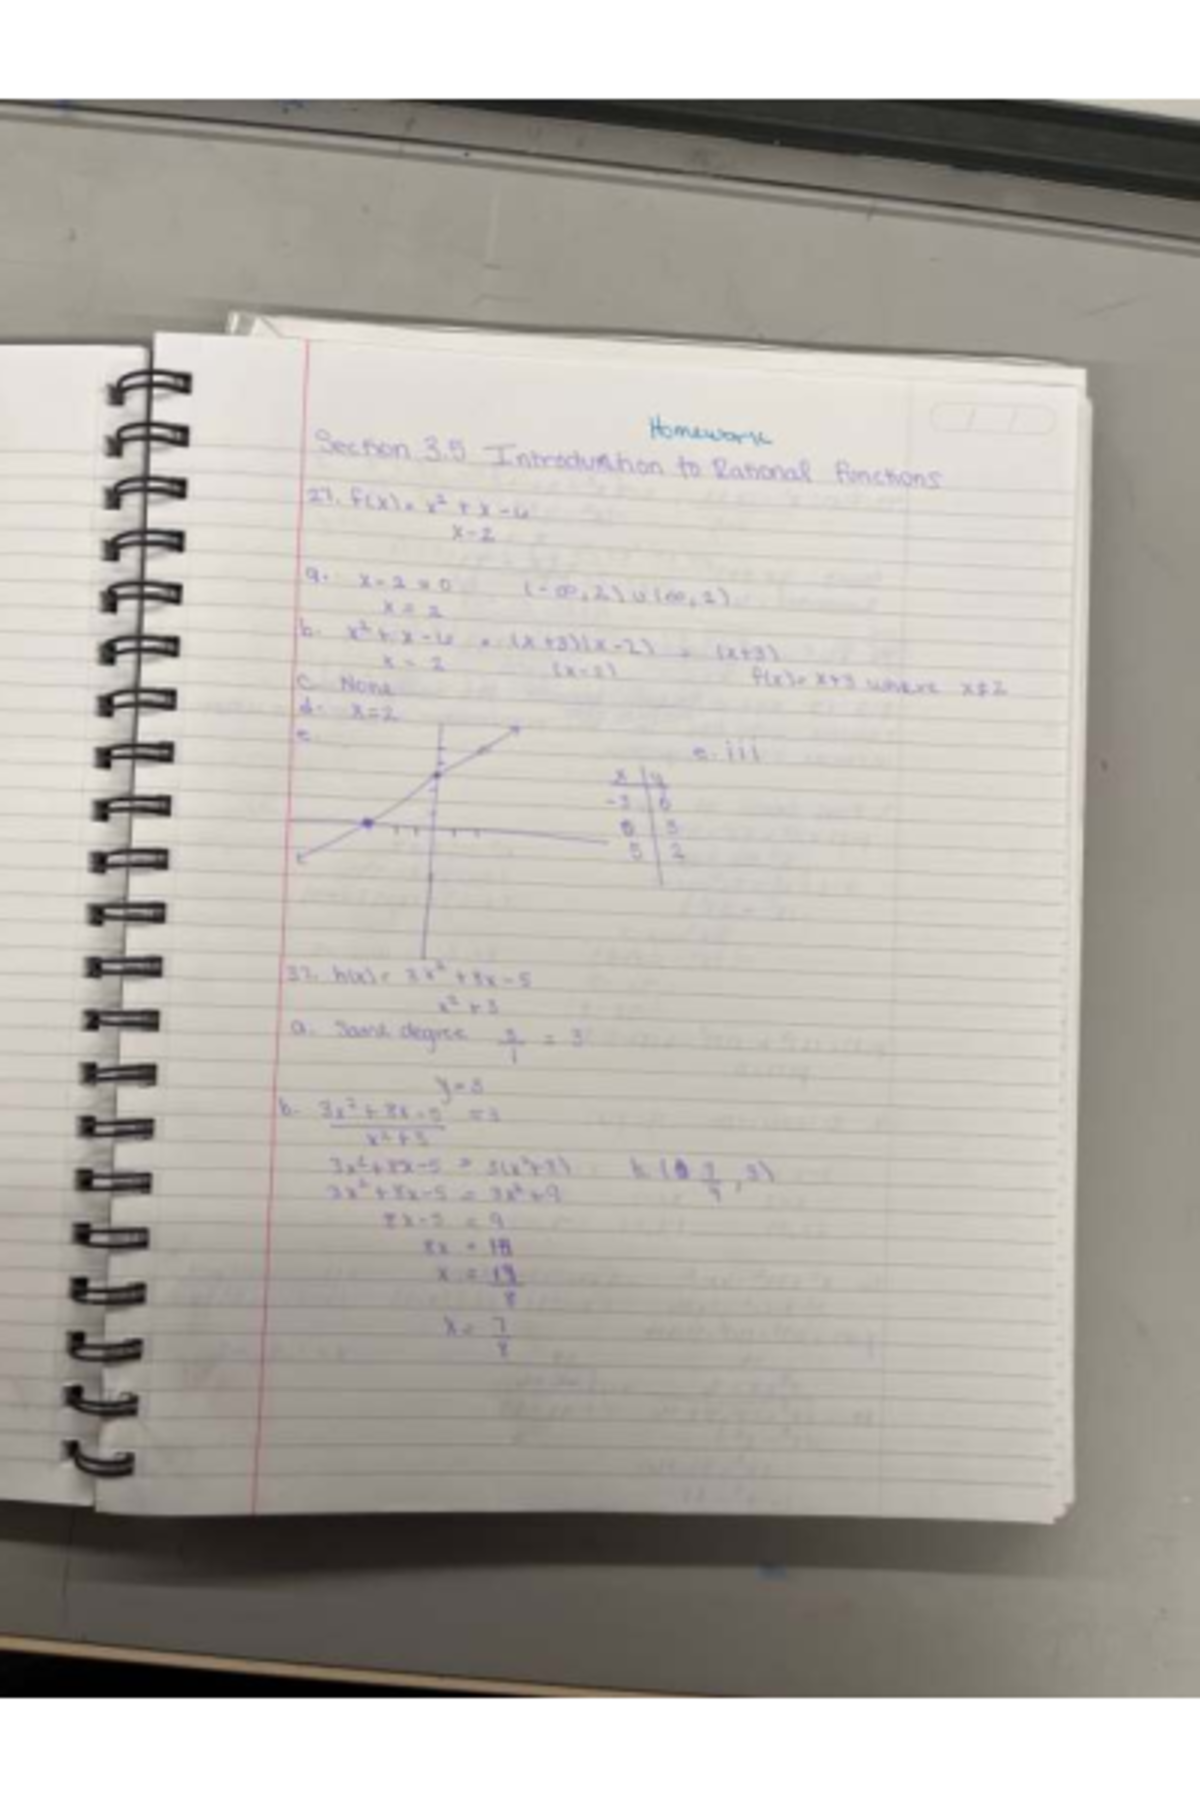 Homework
Section 3.5 Introduction to Rational Functions
27. f(x) = x² + x - 6
x - 2
a. x - 2 = 0 (-∞, 2) ∪ (∞, 2)
x = 2
b. x² + x - 6 = (x+3)(x-2) = (x+3)
x - 2 (x-2) f(x) = x+3 where x ≠ 2
c. None
d. x=2
e. e. iii
x y
-3 0
0 3
5 2
37. h(x) = 3x² + 8x - 5
x² + 3
a. Same degree 3/1 = 3
y = 3
b. 3x² + 8x - 5 = 3
x² + 3
3x² + 8x - 5 = 3(x² + 3)
3x² + 8x - 5 = 3x² + 9
8x - 5 = 9
8x =
x =
8
x = 7